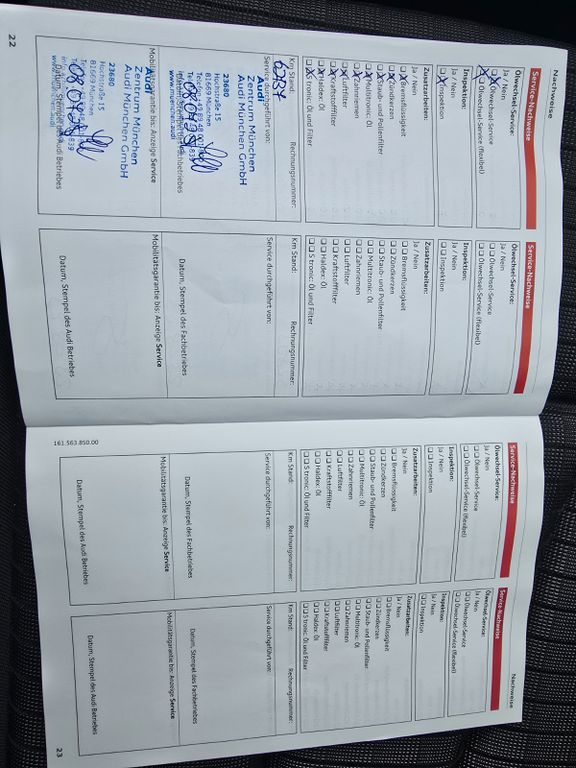 Nachweise
Service-Nachweise
Ölwechsel-Service:
Ja / Nein
Ölwechsel-Service
Ölwechsel-Service (flexibel)
Inspektion:
Ja / Nein
Inspektion
Zusatzarbeiten:
Ja / Nein
Bremsflüssigkeit
Zündkerzen
Staub- und Pollenfilter
Multitronic: Öl
Zahnriemen
Luftfilter
Kraftstofffilter
Haldex: Öl
S tronic: Öl und Filter
Km Stand:
Rechnungsnummer:
Service durchgeführt von:
Audi
Zentrum München
Audi München GmbH
23680
Hochstraße 15
81669 München
Datum, Stempel des Fachbetriebes
Mobilitätsgarantie bis: Anzeige Service
Audi
Zentrum München
Audi München GmbH
23680
Hochstraße 15
81669 München
Datum, Stempel des Audi Betriebes
22
Service-Nachweise
Ölwechsel-Service:
Ja / Nein
Ölwechsel-Service
Ölwechsel-Service (flexibel)
Inspektion:
Ja / Nein
Inspektion
Zusatzarbeiten:
Ja / Nein
Bremsflüssigkeit
Zündkerzen
Staub- und Pollenfilter
Multitronic: Öl
Zahnriemen
Luftfilter
Kraftstofffilter
Haldex: Öl
S tronic: Öl und Filter
Km Stand:
Rechnungsnummer:
Service durchgeführt von:
Datum, Stempel des Fachbetriebes
Mobilitätsgarantie bis: Anzeige Service
Datum, Stempel des Audi Betriebes
161.563.850.00
Service-Nachweise
Ölwechsel-Service:
Ja / Nein
Ölwechsel-Service
Ölwechsel-Service (flexibel)
Inspektion:
Ja / Nein
Inspektion
Zusatzarbeiten:
Ja / Nein
Bremsflüssigkeit
Zündkerzen
Staub- und Pollenfilter
Multitronic: Öl
Zahnriemen
Luftfilter
Kraftstofffilter
Haldex: Öl
S tronic: Öl und Filter
Km Stand:
Rechnungsnummer:
Service durchgeführt von:
Datum, Stempel des Fachbetriebes
Mobilitätsgarantie bis: Anzeige Service
Datum, Stempel des Audi Betriebes
Nachweise
Service-Nachweise
Ölwechsel-Service:
Ja / Nein
Ölwechsel-Service
Ölwechsel-Service (flexibel)
Inspektion:
Ja / Nein
Inspektion
Zusatzarbeiten:
Ja / Nein
Bremsflüssigkeit
Zündkerzen
Staub- und Pollenfilter
Multitronic: Öl
Zahnriemen
Luftfilter
Kraftstofffilter
Haldex: Öl
S tronic: Öl und Filter
Km Stand:
Rechnungsnummer:
Service durchgeführt von:
Datum, Stempel des Fachbetriebes
Mobilitätsgarantie bis: Anzeige Service
Datum, Stempel des Audi Betriebes
23